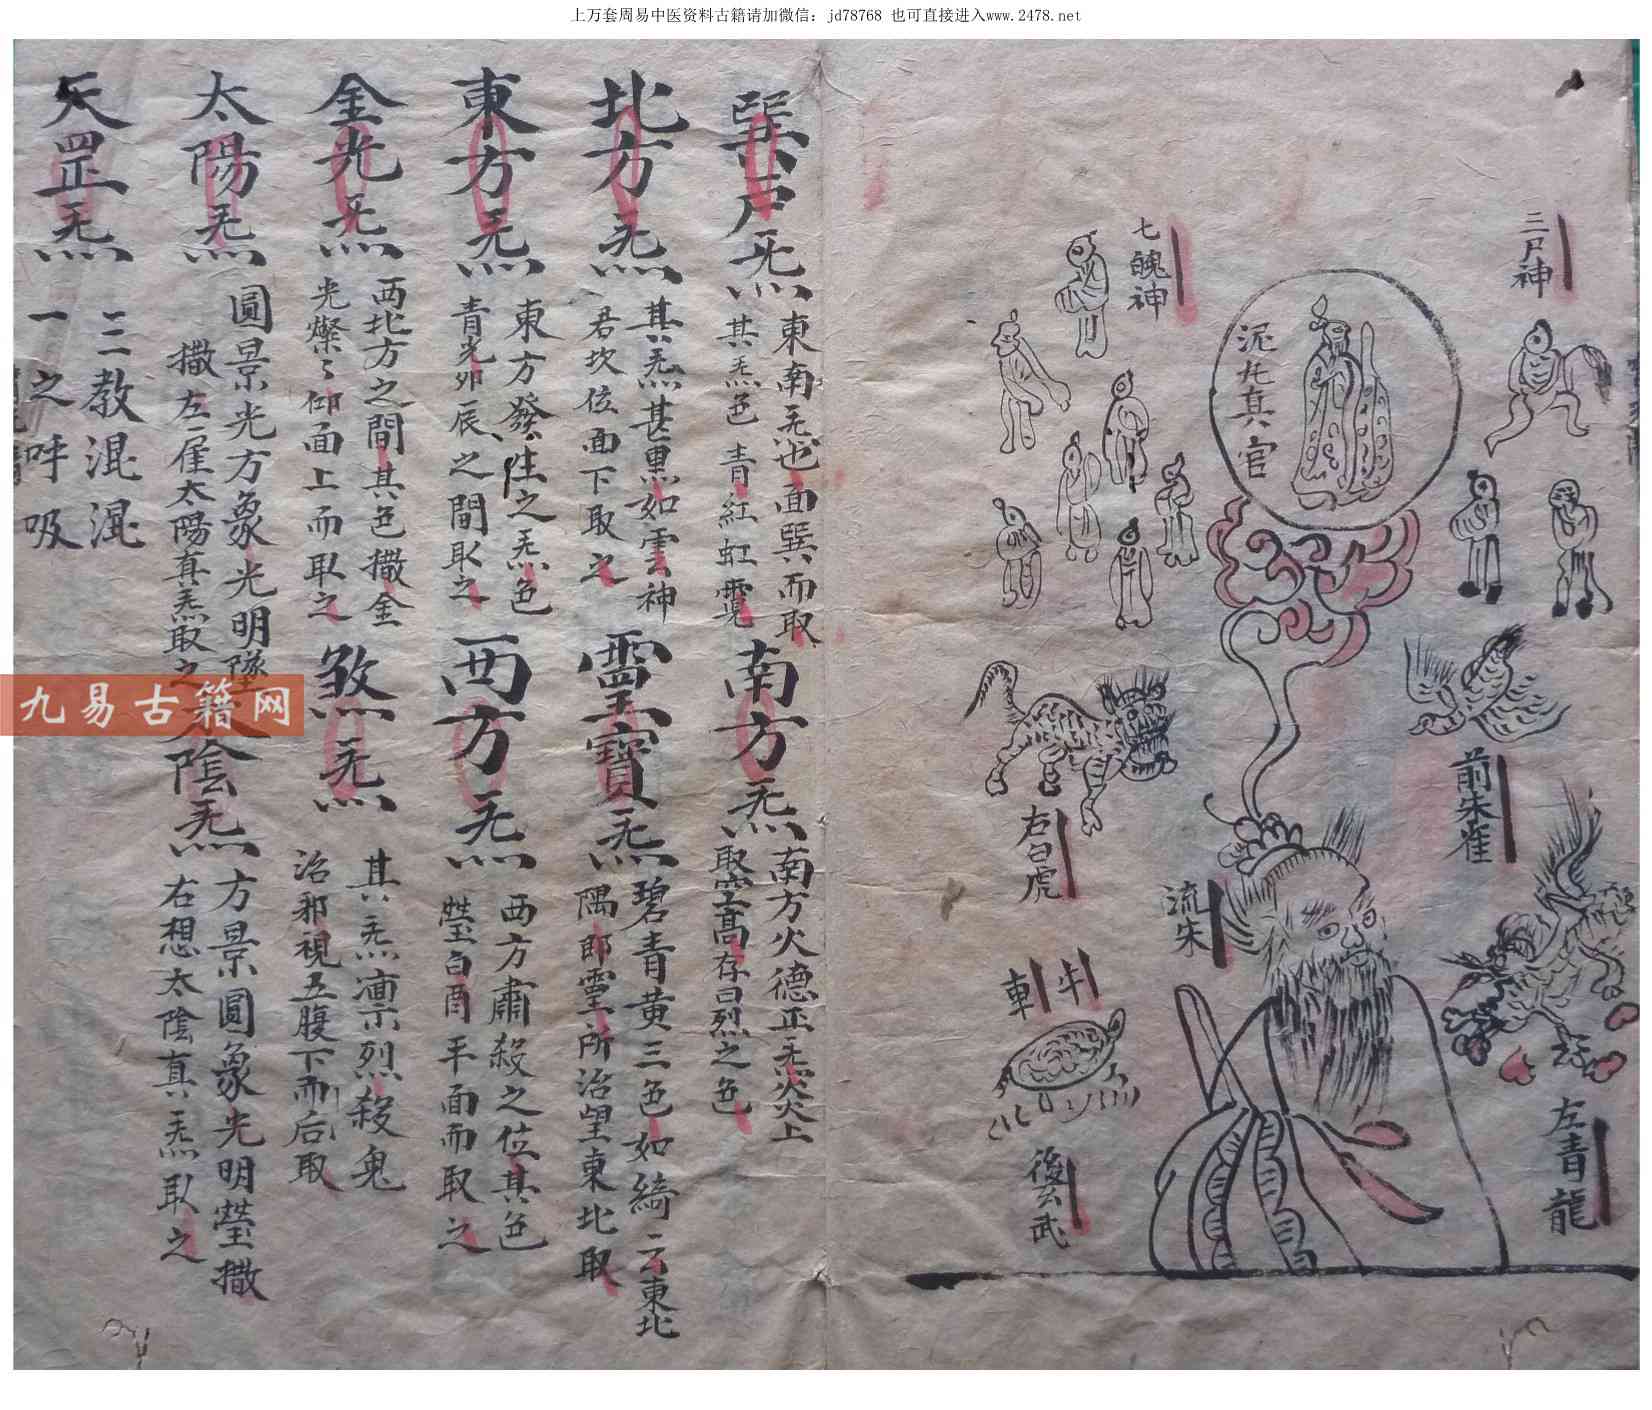 上万套周易中医资料古籍请加微信: jd78768 也可直接进入www.2478.net
三尸神
七魄神
泥丸真官
前朱雀
右白虎
流朱
牛
車
左青龍
後玄武
巽户炁
東南炁也面巽而取
其炁色青紅虹霓
南方炁
南方火德正炁火炎上
取空高存曰烈之色
北方炁
其炁甚黑如雲神
君坎位面下取之
靈寶炁
碧青黄三色如綺云東北
隅郎靈所治望東北取
東方炁
東方發生之炁色
青光卯辰之間取之
西方炁
西方肅殺之位其色
瑩白酉平面而取之
金光炁
西北方之間其色撒金
光燦々仰面上而取之
煞炁
其炁凛烈殺鬼
治邪視五腹下而后取
太陽炁
圓景光方象光明墜
撒左雇太陽真炁取之
太陰炁
方景圓象光明瑩撒
右想太陰真炁取之
天罡炁
三教混混
一之呼吸
九易古籍网